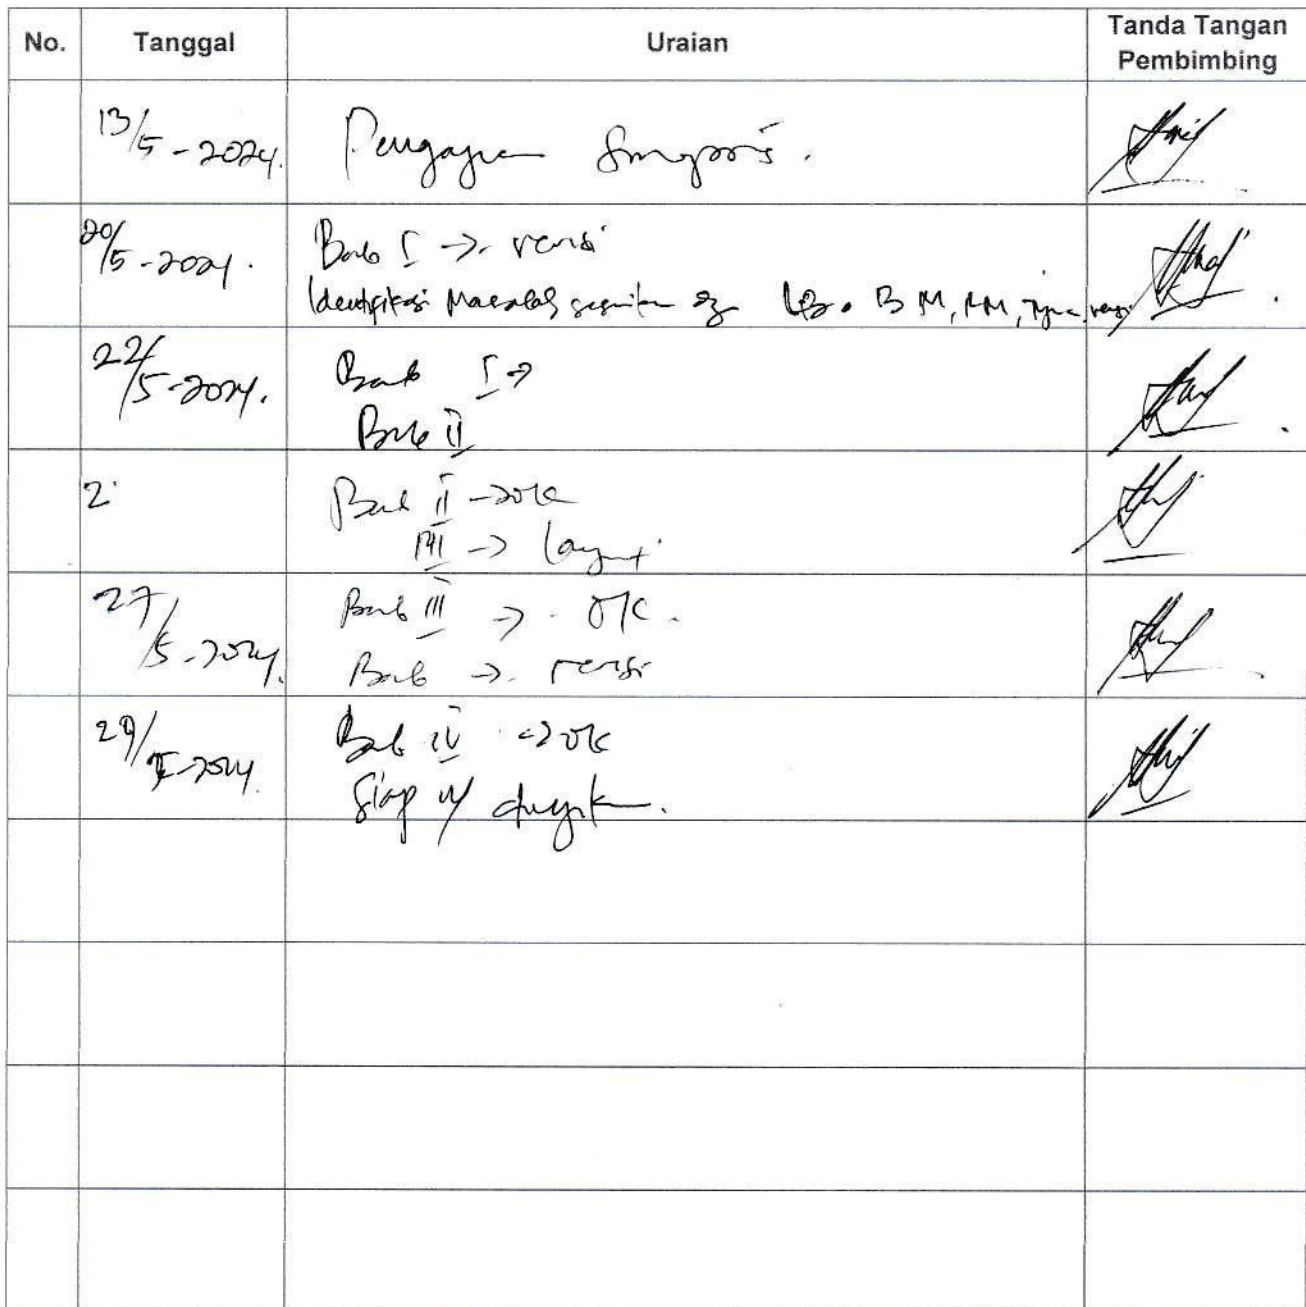 No. Tanggal Uraian Tanda Tangan
Pembimbing
13/5-2024. Pengajuan Sinopsis.
20/5-2024. Bab I -> revisi
Identifikasi Masalah sesuaikan dg LB. BM, RM, revisi
22/5-2024. Bab I ->
Bab II
2 Bab II -> OK
III -> lanjut
27/5-2024. Bab III -> OK.
Bab -> revisi
29/5-2024. Bab IV -> OK
Siap u/ diujikan.